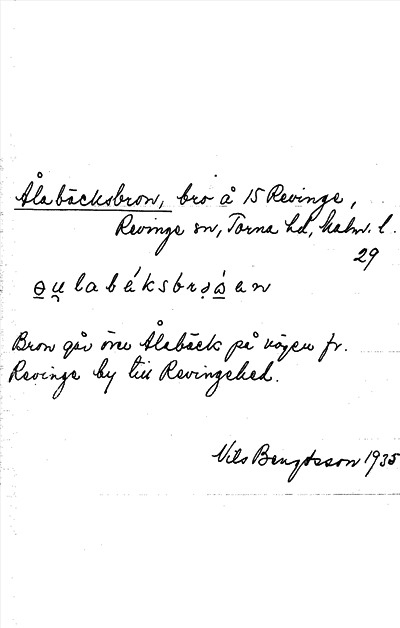 Ålabäcksbron, bro å 15 Revinge,
Revinge sn, Torna hd, Malm. l.
29
Bron går över Ålabäck på vägen fr.
Revinge by till Revingehed.
Nils Bengtsson 1935